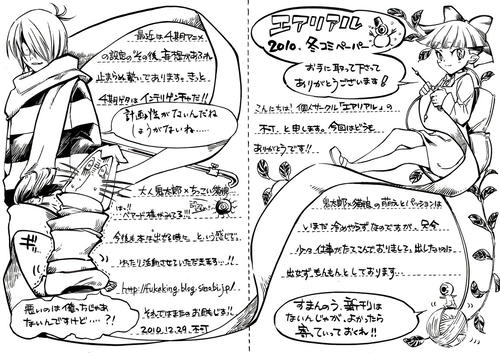 エアリアル
2010.冬コミペーパー
お手に取って下さって
ありがとうございます!
こんにちは!個人サークル「エアリアル」の
不可、と申します。今回はどうも
ありがとうです!!
鬼太郎×猫娘の萌えとパッションは
いまだ冷めやらずなのですが、只今
少々仕事がたてこんでおりまして、出したいのに
出せずもんもんとしております…
すまんのう、新刊は
ないんじゃが、よかったら
寄っていっておくれ!!
最近は4期アニメ
の設定のその後、妄想があふれ
止まらぬ勢いであります。きっと
4期ゲタはインテリゲンチャだ!!
計画性がないんだね
しょうがないね……
大人鬼太郎×ちっこい猫娘
は!!
ベアード様がみてる!!!
今後も本は出せる時に、という感じで、
ゆったり活動させていただきます…!!
それではまたお会いしましょう!!
2010.12.29.不可
悪いのは僕っちじゃあ
ないんですけど…?!